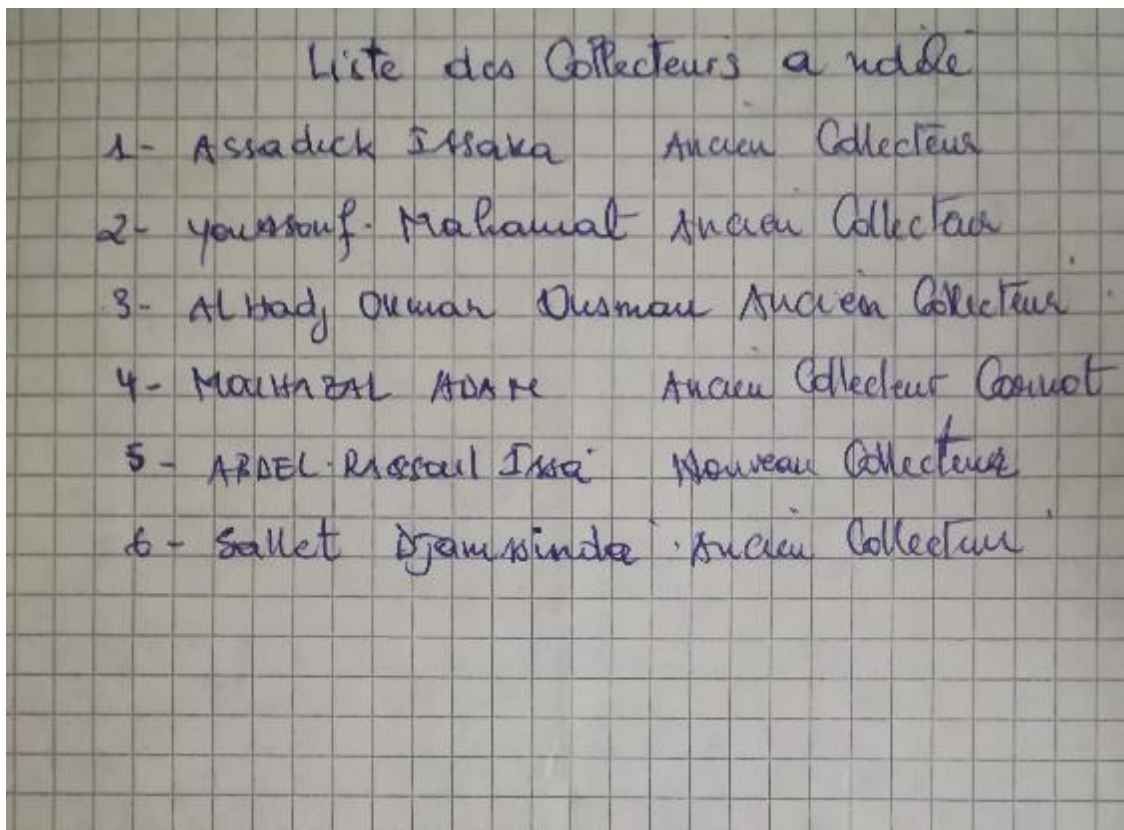 Liste des Collecteurs a ndele
1- Assadick Issaka Ancien Collecteur
2- Youssouf. Mahamat Ancien Collecteur
3- Al Hadj Oumar Ousman Ancien Collecteur
4- MOUHAZAL ADAM Ancien Collecteur Carnot
5- ABDEL. RASSOUL Issa Nouveau Collecteur
6- Sallet Djamssinda Ancien Collecteur